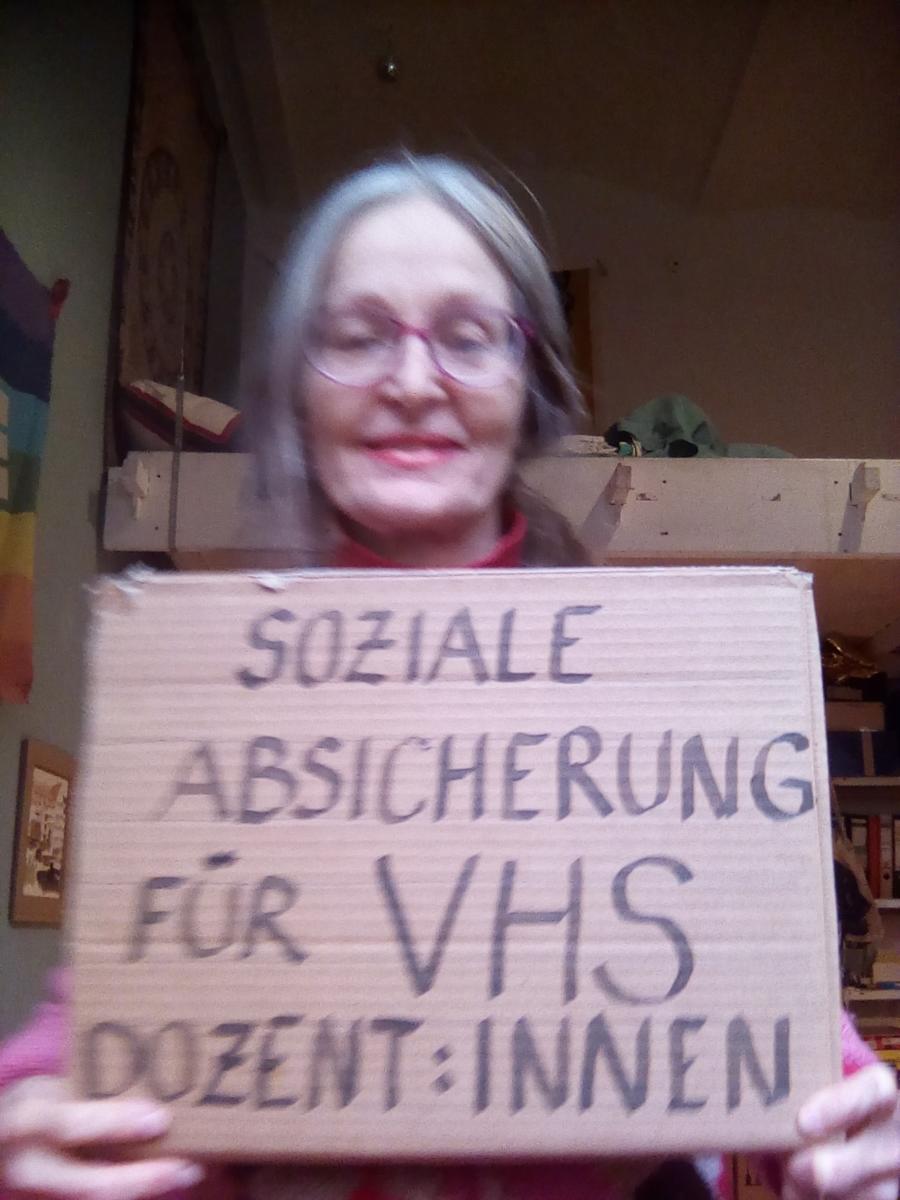 SOZIALE
ABSICHERUNG
FÜR VHS
DOZENT:INNEN